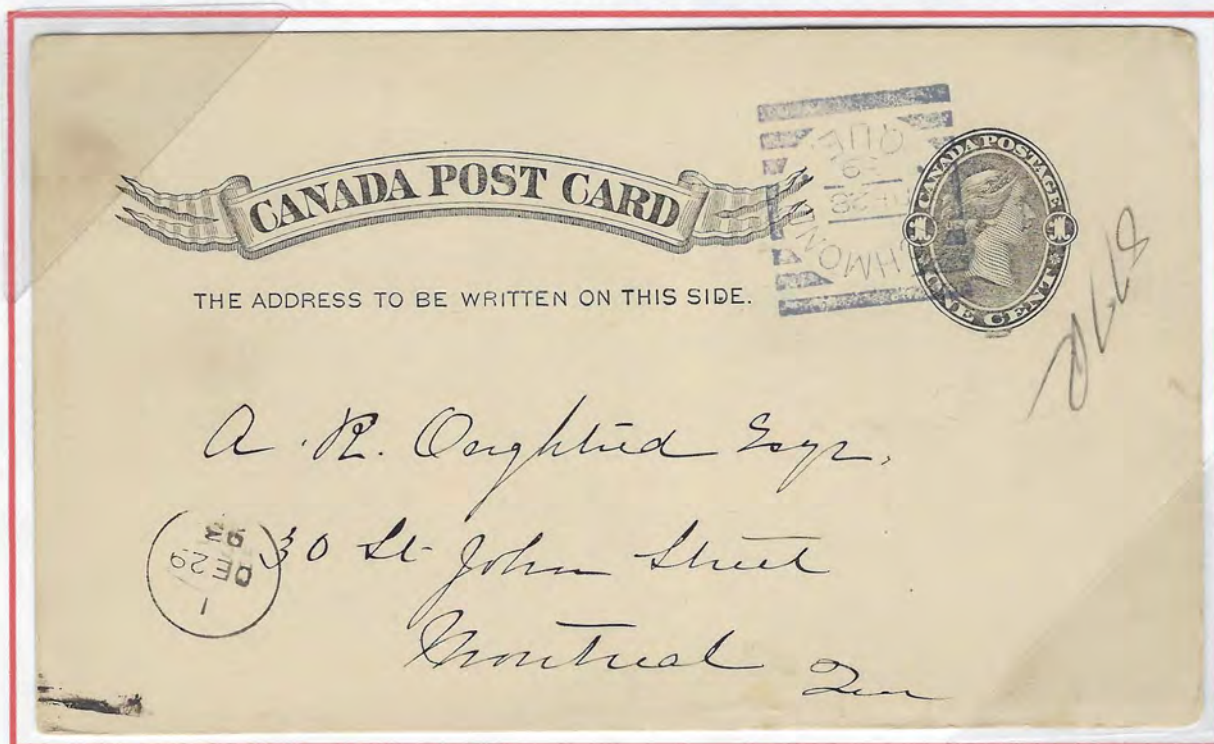 CANADA POST CARD
THE ADDRESS TO BE WRITTEN ON THIS SIDE.
QUE
DE 28
HMOND
CANADA POSTAGE
1 1
ONE CENT
A. R. Oughtred Esqr.
30 St. John Street
Montreal Que
1
DE 29